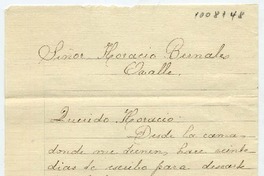 1008148
Señor Horacio Bernales
Ovalle.
Querido Horacio:
Desde la cama
donde me tienen, hace veinte
dias te escribo para desearte